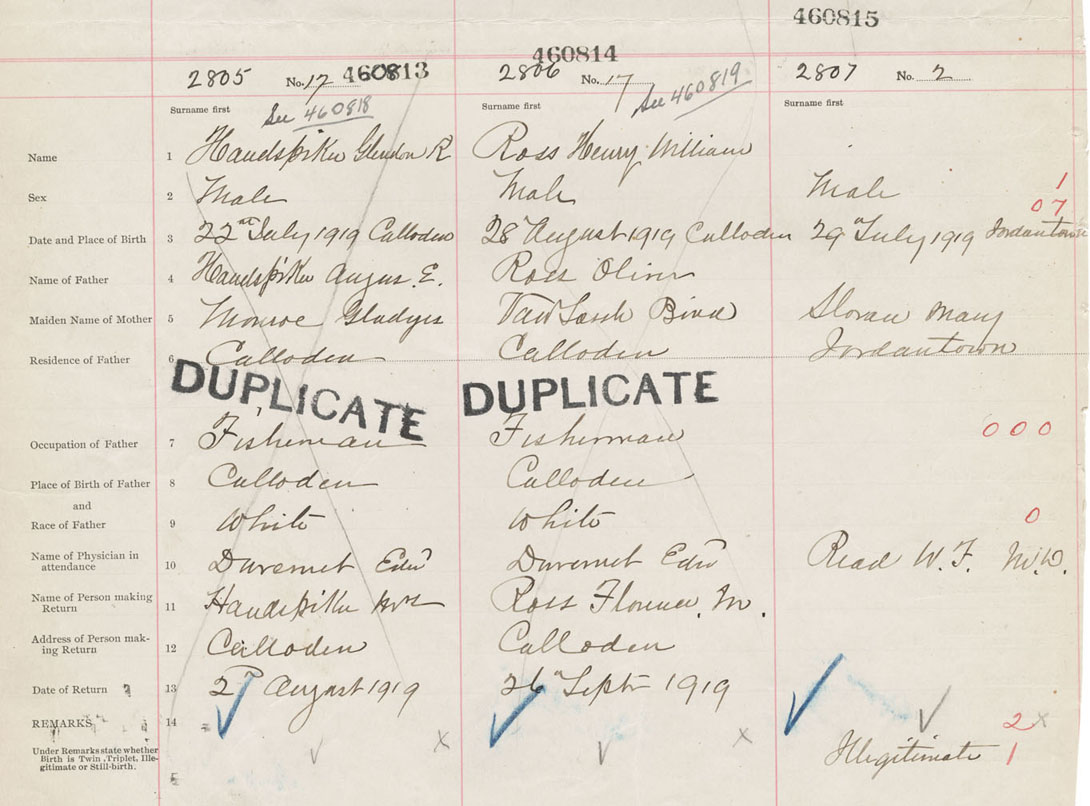 460815
460814
2805 No. 17 460813 2806 No. 17 2807 No. 2
See 460818 See 460819
Surname first Surname first Surname first
Name 1 Handspiker Glendon R Ross Henry William
Sex 2 Male Male Male 1
07
Date and Place of Birth 3 22nd July 1919 Calloden 28 August 1919 Calloden 29 July 1919 Jordantown
Name of Father 4 Handspiker Angus. E. Ross Oliver
Maiden Name of Mother 5 Monroe Gladys Sloran Mary
Residence of Father 6 Calloden Calloden Jordantown
DUPLICATE DUPLICATE
Occupation of Father 7 Fisherman Fisherman 000
Place of Birth of Father 8 Calloden Calloden
and
Race of Father 9 White White 0
Name of Physician in
attendance 10 Edw Edw Read W. F. M.D.
Name of Person making
Return 11 Handspiker Mrs Ross Florence. M.
Address of Person mak-
ing Return 12 Calloden Calloden
Date of Return 13 2nd August 1919 26 Sept 1919
REMARKS 14 2 x
Under Remarks state whether
Birth is Twin, Triplet, Ille-
gitimate or Still-birth. Illegitimate 1